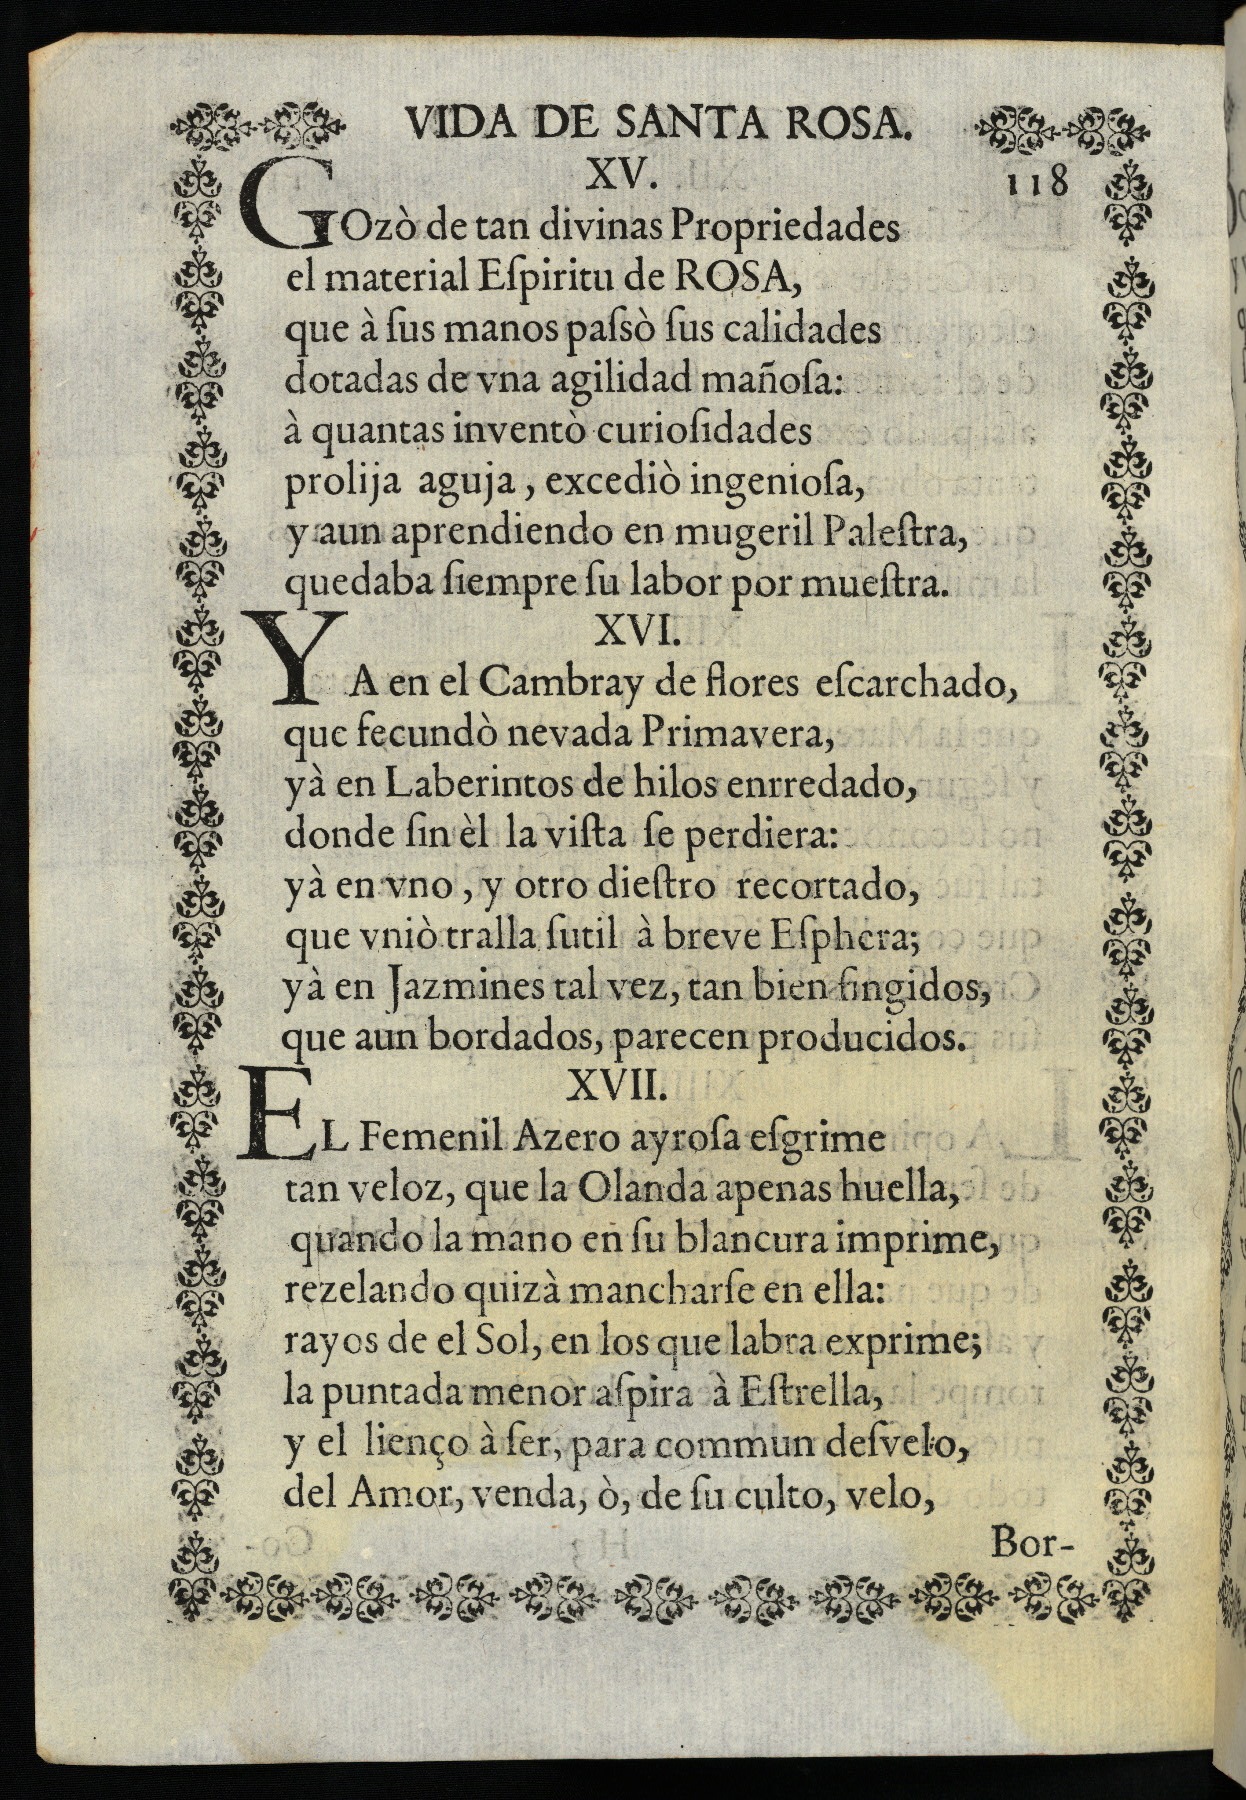 VIDA DE SANTA ROSA.
XV.
118
GOzò de tan divinas Propriedades
el material Eſpiritu de ROSA,
que à ſus manos paſsò ſus calidades
dotadas de vna agilidad mañoſa:
à quantas inventò curioſidades
prolija aguja, excediò ingenioſa,
y aun aprendiendo en mugeril Paleſtra,
quedaba ſiempre ſu labor por mueſtra.
XVI.
YA en el Cambray de flores eſcarchado,
que fecundò nevada Primavera,
yà en Laberintos de hilos enrredado,
donde ſin èl la viſta ſe perdiera:
yà en vno, y otro dieſtro recortado,
que vniò tralla ſutil à breve Eſphera;
yà en Jazmines tal vez, tan bien fingidos,
que aun bordados, parecen producidos.
XVII.
EL Femenil Azero ayroſa eſgrime
tan veloz, que la Olanda apenas huella,
quando la mano en ſu blancura imprime,
rezelando quizà mancharſe en ella:
rayos de el Sol, en los que labra exprime;
la puntada menor aſpira à Eſtrella,
y el lienço à ſer, para commun deſvelo,
del Amor, venda, ò, de ſu culto, velo,
Bor-